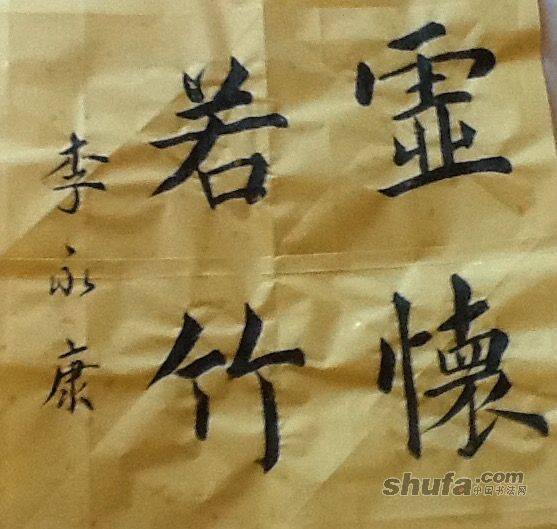 虛懷
若竹
李永康
shufa.com
中国书法网